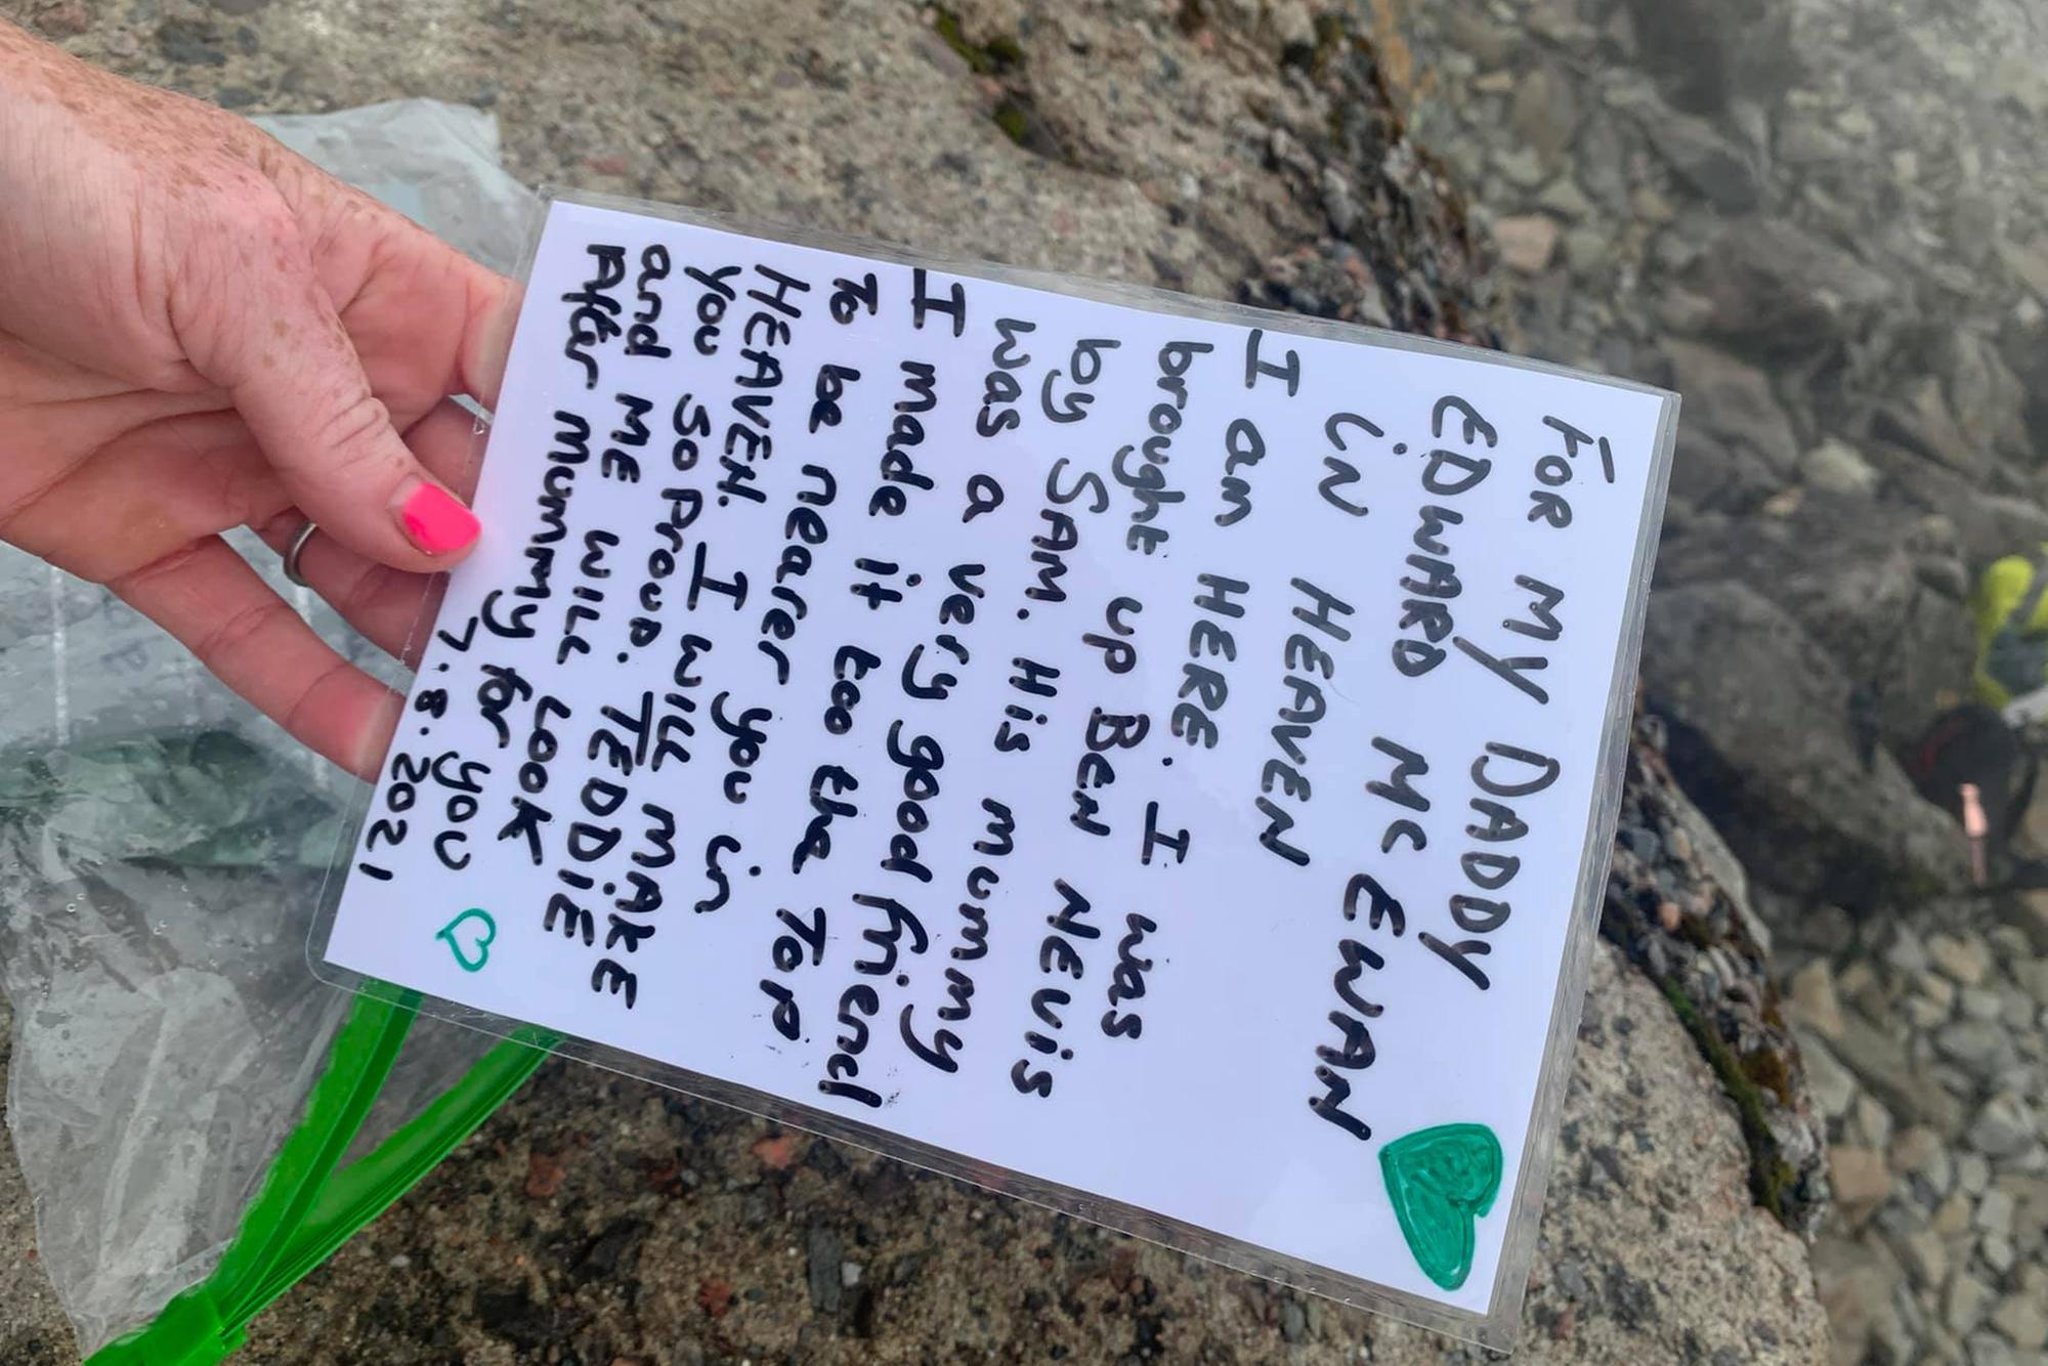 FOR MY DADDY
EDWARD MC EWAN
in HEAVEN
I am HERE. I was
brought up BEN NEVIS
by SAM. His mummy
was a very good friend
I made it too the TOP
To be nearer you in
HEAVEN. I WILL MAKE
you so Proud. TEDDIE
and ME WILL LOOK
After mummy for you
7.8.2021